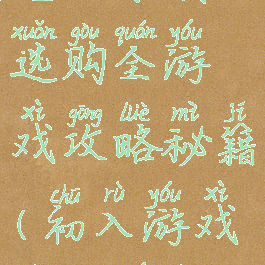 xuǎn gòu quán yóu
选购全游
xì gōng lüè mì jí
戏攻略秘籍
chū rù yóu xì
(初入游戏